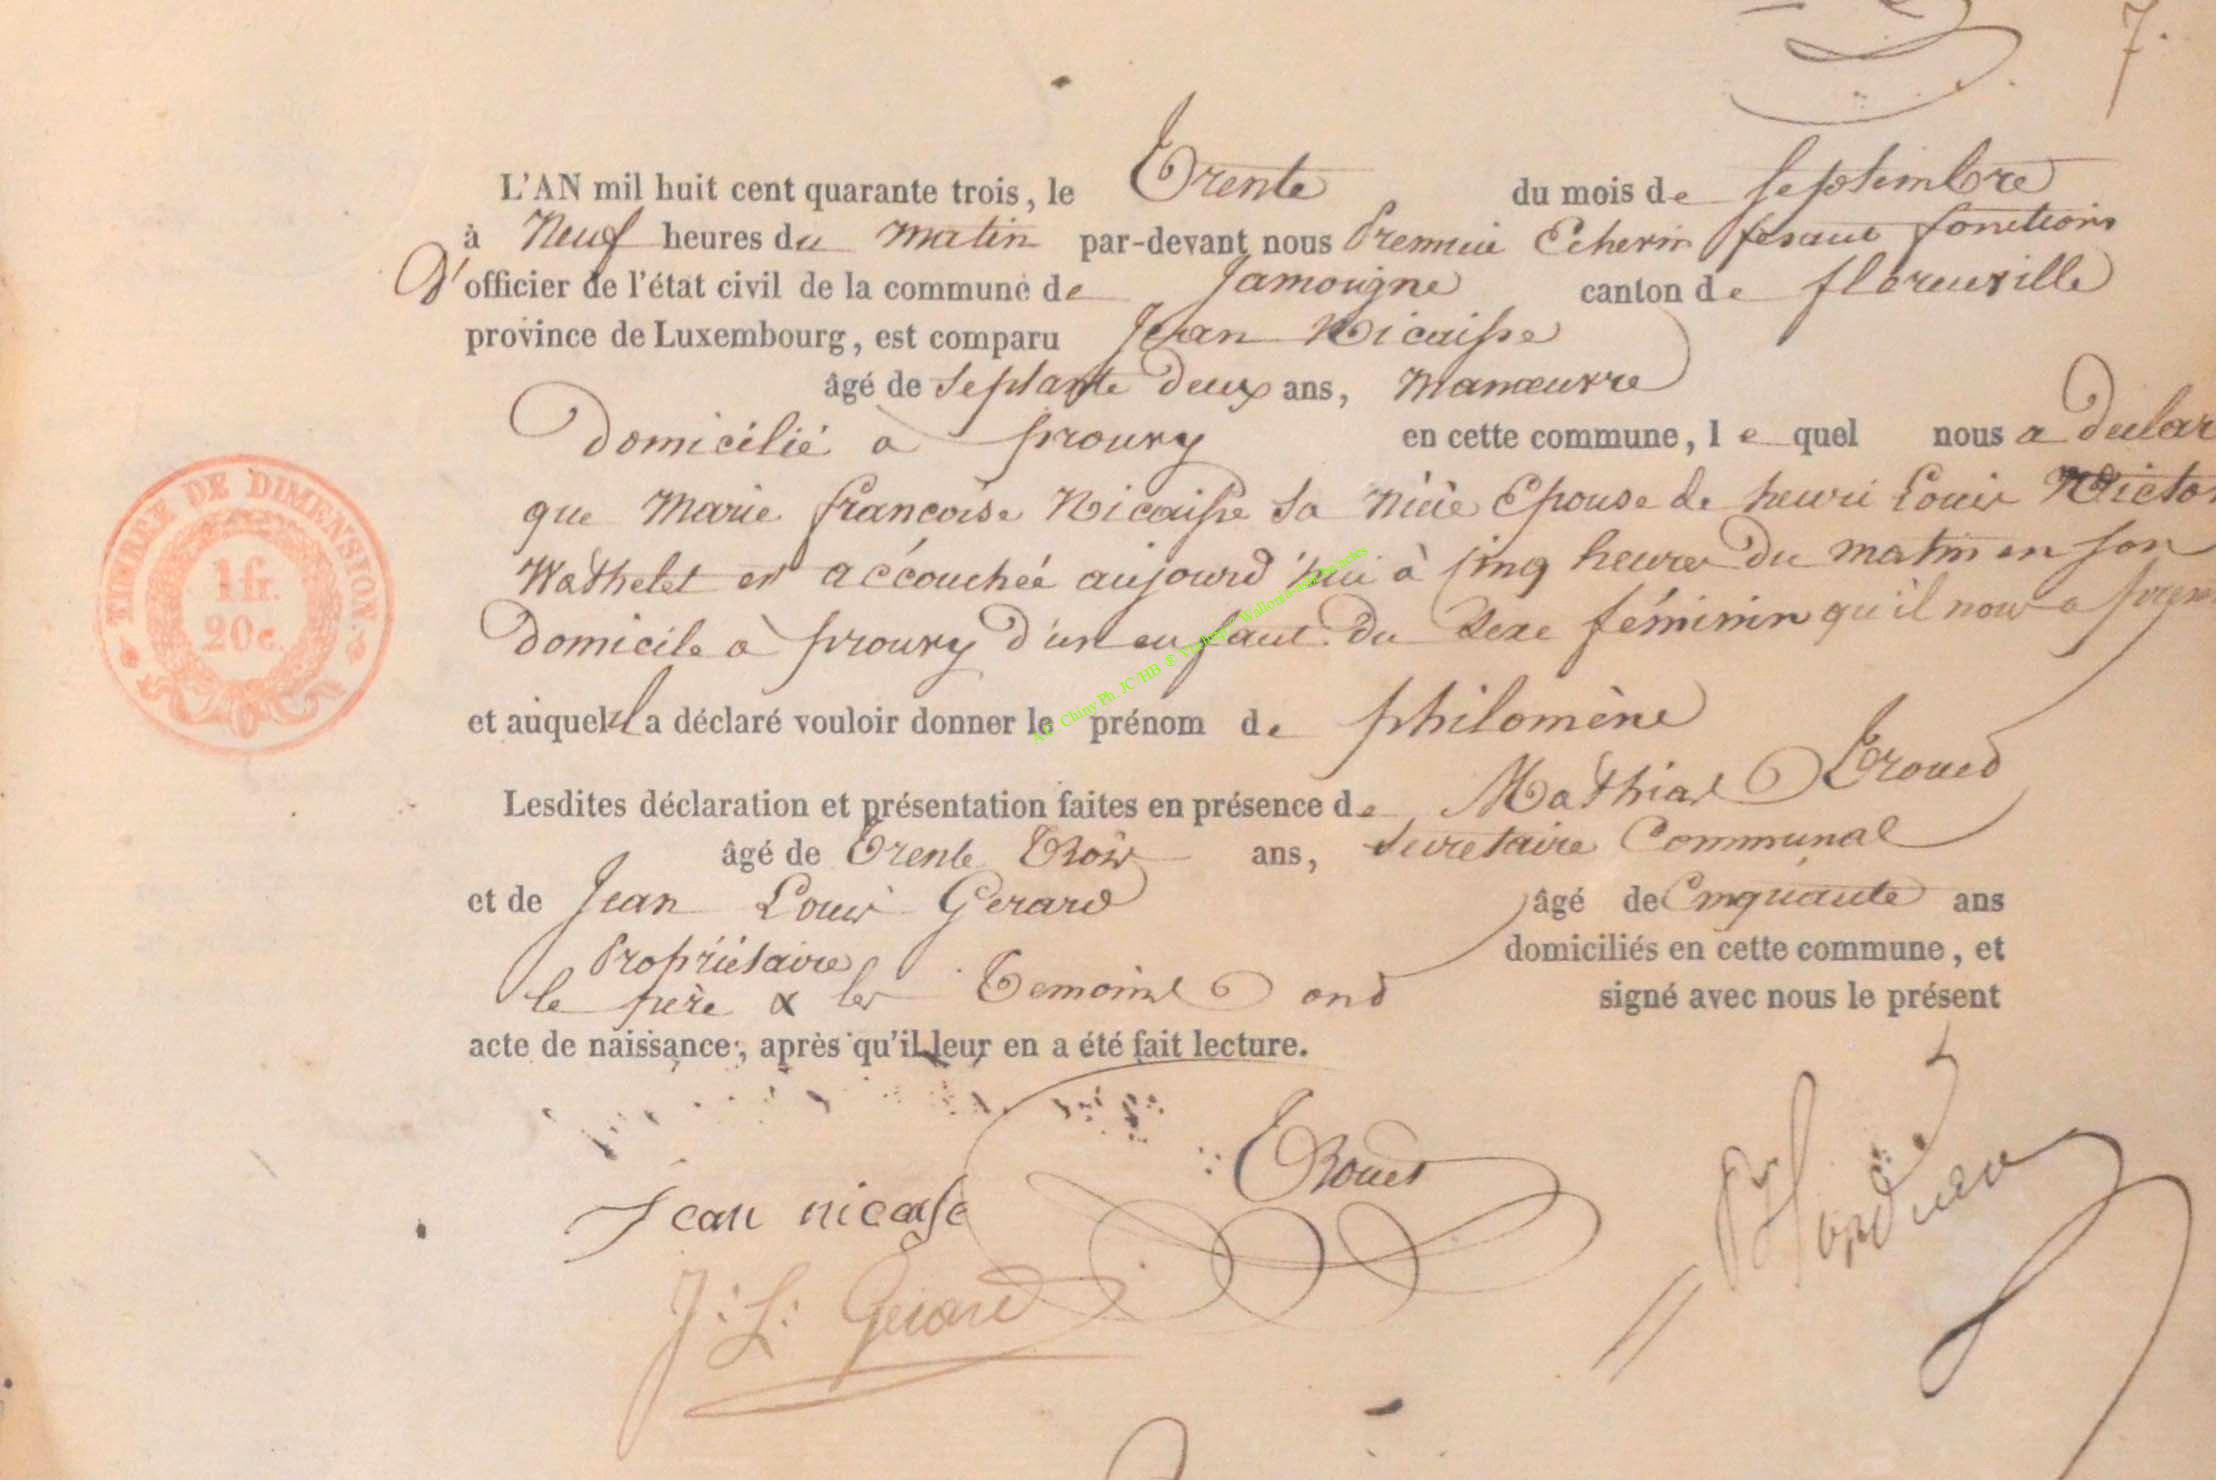 7.
L'AN mil huit cent quarante trois, le Trente du mois de Septembre
à Neuf heures du matin par-devant nous Premier Echevin fesant fonctions
D'officier de l'état civil de la commune de Jamoigne canton de florenville
province de Luxembourg, est comparu Jean Nicaisse
âgé de Septante Deux ans, Manœuvre
Domicilié à prouvy en cette commune, le quel nous a declar
que Marie françoise Nicaisse Sa Nièce Epouse de henri Louis Victor
Wathelet est accouchée aujourd'hui à Cinq heures Du matin en Son
Domicile à prouvy d'un enfant Du Sexe féminin qu'il nous a
et auquel il a déclaré vouloir donner le prénom de philomène
Lesdites déclaration et présentation faites en présence de Mathias Troued
âgé de Trente Trois ans, Secretaire Communal
et de Jean Louis Gerard âgé de Cinquante ans
Propriétaire domiciliés en cette commune, et
le père & les Temoins ond signé avec nous le présent
acte de naissance, après qu'il leur en a été fait lecture.
TIMBRE DE DIMENSION.
1 fr.
20 c.
Jean nicase
J: L: Gerard